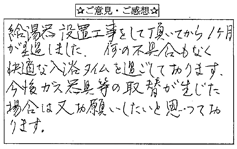 ☆ご意見・ご感想☆
給湯器設置工事をして頂いてから1ヶ月
が経過しました。何の不具合もなく
快適な入浴タイムを過ごしております。
今後ガス器具等の取替が生じた
場合は又お願いしたいと思っており
ます。